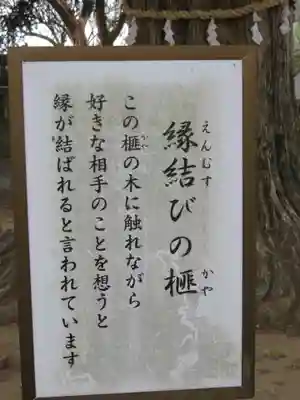 縁結びの榧
えんむす
かや
この榧の木に触れながら
かや
好きな相手のことを想うと
縁が結ばれると言われています